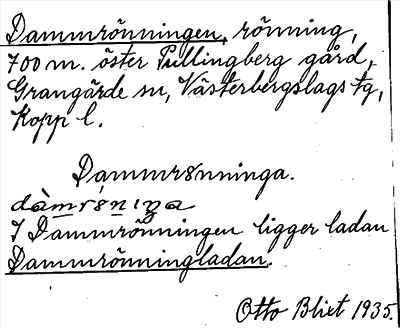 Dammrönningen, rönning,
700 m. öster Pullingberg gård,
Grangärde sn, Västerbergslags tg,
Kopp. l.
Dammrönninga.
dàmrǿnıŋa
I Dammrönningen ligger ladan
Dammrönningladan.
Otto Blixt 1935.